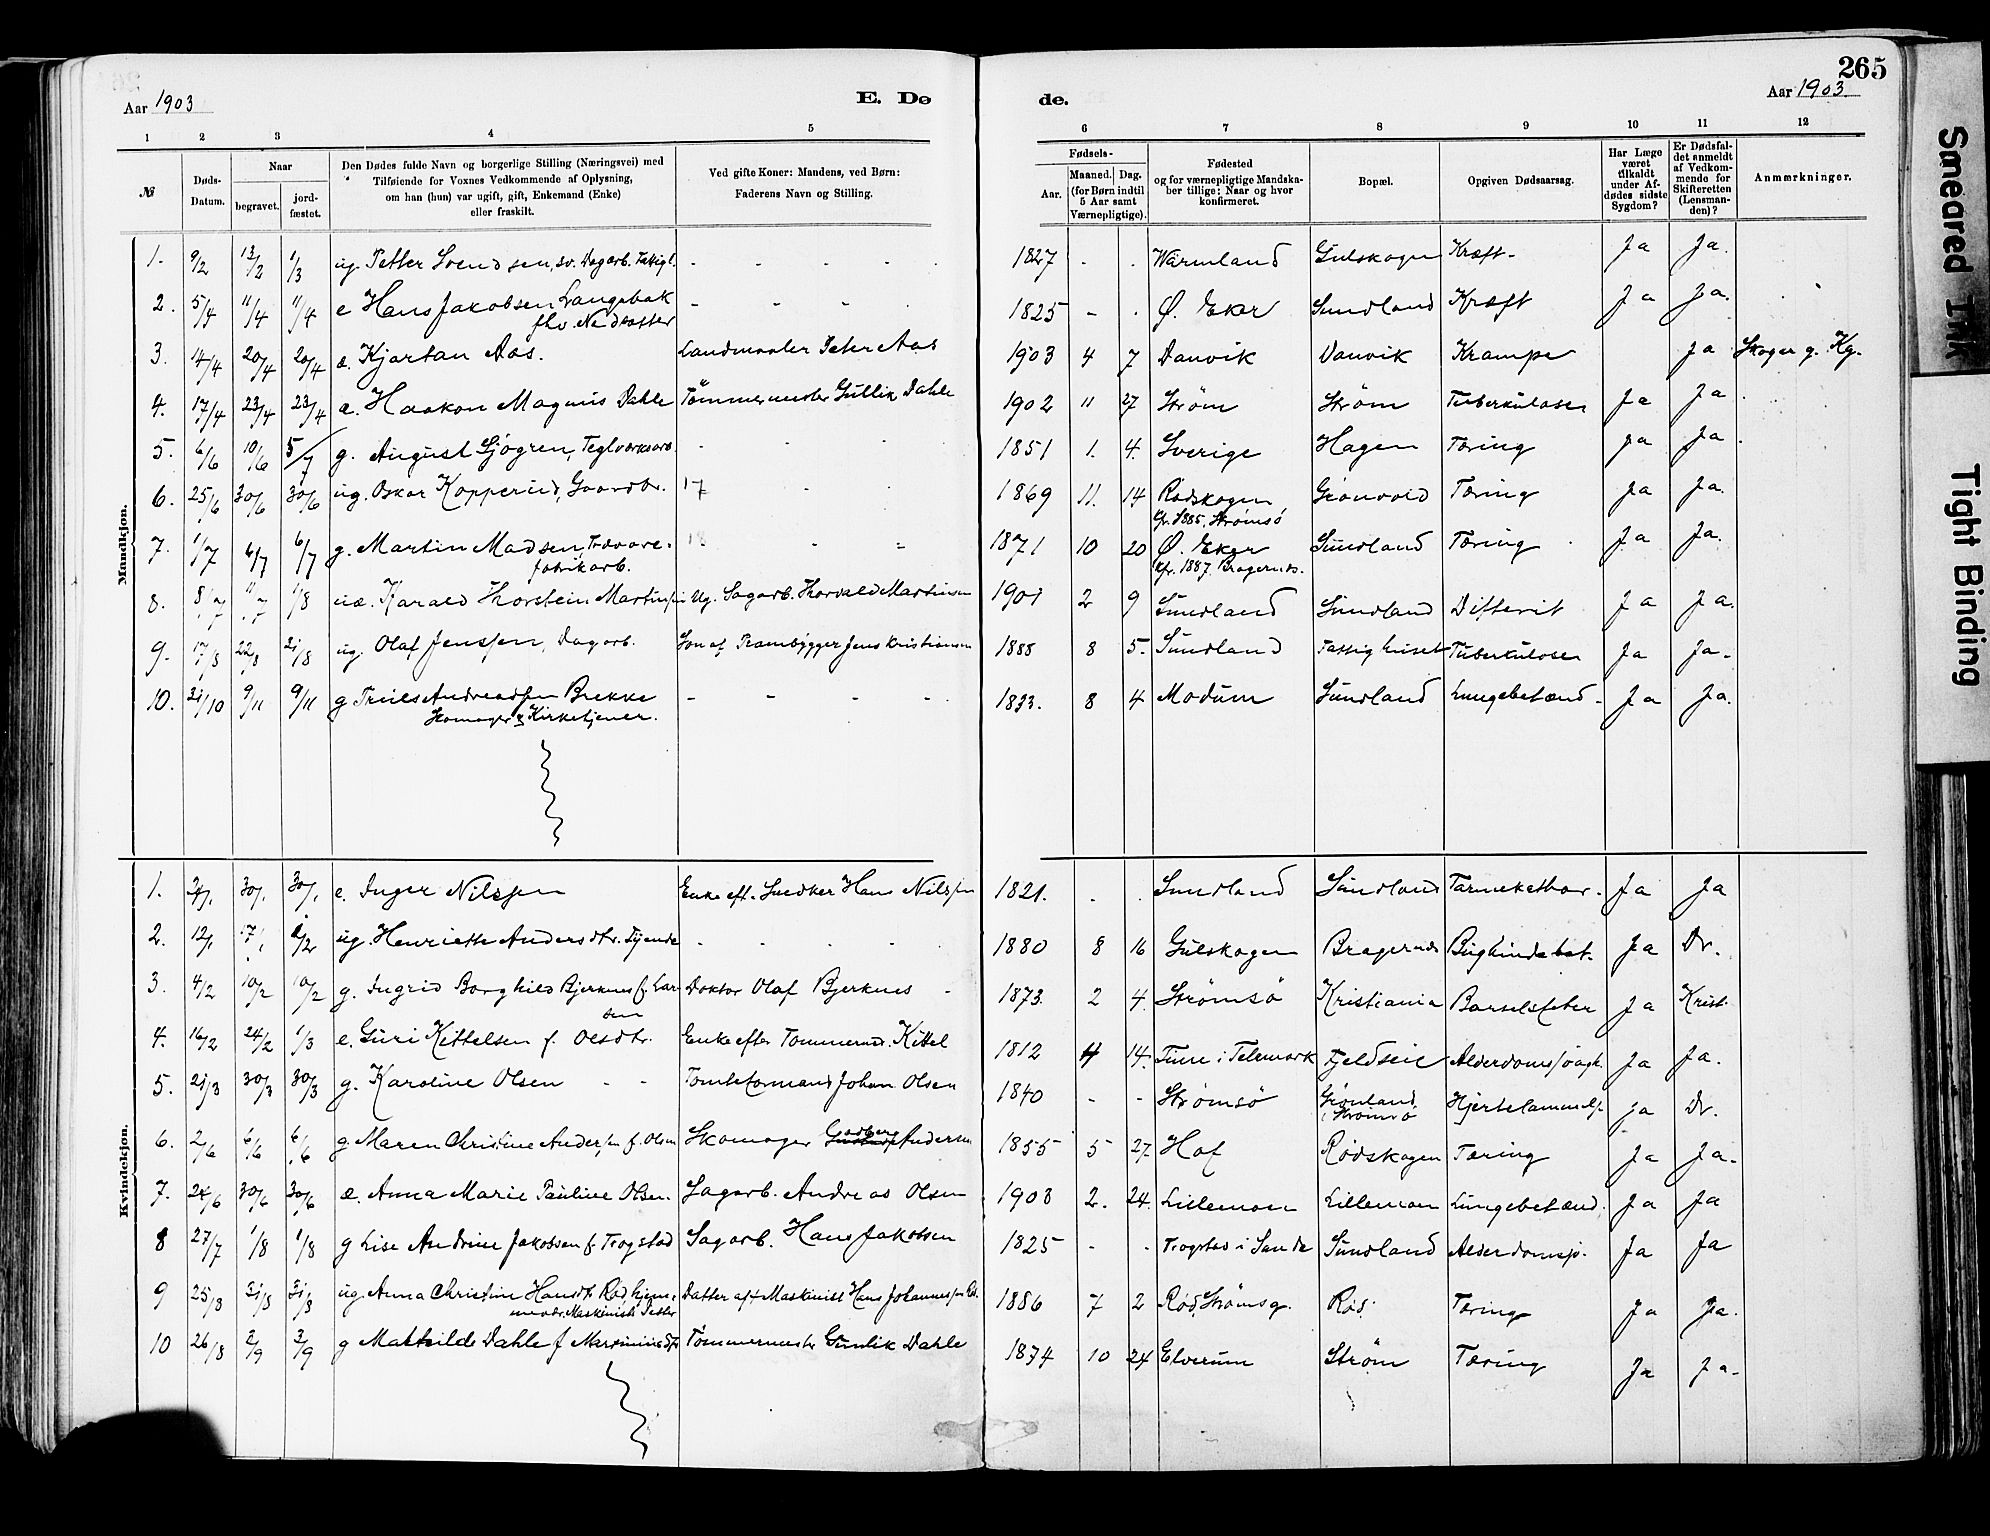 265
Aar 1903
E. Dø
de.
Aar 1903
1 2 3 4 5 6 7 8 9 10 11 12
№
Døds-
Datum.
Naar
begravet.
jord-
fæstet.
Den Dødes fulde Navn og borgerlige Stilling (Næringsvei) med
Tilføiende for Voxnes Vedkommende af Oplysning,
om han (hun) var ugift, gift, Enkemand (Enke)
eller fraskilt.
Ved gifte Koner: Mandens, ved Børn:
Faderens Navn og Stilling.
Fødsels-
Aar.
Maaned. Dag.
(for Børn indtil
5 Aar samt
Værnepligtige).
Fødested
og for værnepligtige Mandska-
ber tillige: Naar og hvor
konfirmeret.
Bopæl.
Opgiven Dødsaarsag.
Har Læge
været
tilkaldt
under Af-
dødes sidste
Sygdom?
Er Dødsfal-
det anmeldt
af Vedkom-
mende for
Skifteretten
(Lensman-
den)?
Anmærkninger.
Mandkjøn.
1. 9/2 13/2 1/3 ug. Petter Svendsen, sv. Dagarb. - - - - 1827 - . Wärmland Gulskogen Kræft - Ja Ja.
2. 5/4 11/4 11/4 e Hans Jakobsen Langebak - - - - 1825 - . Ø. Eker Sundland Kræft Ja Ja.
fhv.
3. 14/4 20/4 20/4 æ. Kjartan Aas. Landmaaler Peter Aas 1903 4 7 Danvik Danvik Krampe Ja Skoger g. Kg.
4. 17/4 23/4 23/4 æ. Haakon Magnus Dahle Tömmermester Gullik Dahle 1902 11 27 Strøm Strøm Tuberkulose Ja Ja
5. 6/6 10/6 5/7 g. August Sjögren, Teglværksarb. - - - 1851 1. 4. Sverige Hagen Tæring Ja Ja
6. 25/6 30/6 30/6 ug. Oskar Kopperud, Gaardbr. 17 - - 1869 11. 14 Rødskogen Grønvold Tæring Ja Ja.
1885, Strømsö
7. 1/7 6/7 6/7 g. Martin Madsen, Trævare- - - 1871 10 20 Ø. Eker Sundland Tæring Ja Ja.
fabrikarb. Kfr. 1887. Bragernes.
8. 1/8 uæ. Harald Thorstein Martinsen Ug. Sagarb. Thorvald Martinsen 1901 2 9 Sundland Sundland Difterit Ja Ja.
9. 17/8 22/8 21/8 ug. Olaf Jenssen, Dagarb. Søn af Prambygger Jens Kristiansen 1888 8 5. Sundland Fattighuset Tuberkulose Ja Ja-
10. 31/10 9/11 9/11 g Truls Andreassen Brekke - - - - 1833. 8 4 Modum Sundland Lungebetænd. Ja Ja.
Skomager & Kirketjener.
Kvindekjøn.
1. 30/1 30/1 e. Inger Nilssen Enke eft. Snedker Hans Nilssen 1821. . . Sundland Sundland Ja Ja
2. 12/1 17/1 2/2 ug. Henriette Andersdtr. Tjende - - - - 1880 8 16 Gulskogen Bragernes Bughindebet. Ja Dr.
3. 4/2 10/2 10/2 g. Ingrid Borghild Bjerknes f. Lar- Doktor Olaf Bjerknes - 1873. 2 4. Strömsö Kristiania Barselfeber Ja Krist.
sen
4. 16/2 24/2 1/3 e. Guri Kittelsen f. Olsdtr. Enke efter Tommermd. Kittel 1812 4 14. Tinn i Telemark Fjeldseie Ja Ja.
5. 21/3 30/3 30/3 g. Karoline Olsen - - Tomteformand Johan Olsen 1840 - - Strömsö Grönland Ja Dr.
i Strømsø
6. 2/6 6/6 6/6 g Maren Christine Andersen f. Olsen Skomager Andersen 1855 5 27. Hof Rødskogen Tæring Ja Ja-
7. 24/6 30/6 30/6 æ. Anna Marie Pauline Olsen. Sagarb. Andreas Olsen 1903 2. 24. Lillemoen Lillemoen Lungebetænd. Ja Ja
8 27/7 1/8 1/8 g Lise Andrine Jakobsen f. Trogstad Sagarb. Hans Jakobsen 1825 - - Trogstad i Sande Sundland Ja Ja
9 25/8 31/8 31/8 ug. Anna Christine Hansdtr. Rød Datter af Maskinist Hans Johannessen 1886 7 2 Rød, Strømsg. Rød. Tæring Ja Ja.
10 26/8 2/9 2/9 g Mathilde Dahle f Tömmermester Gunlik Dahle 1874 10 24 Elverum Strøm Tæring Ja Ja-
Smeared Ink
Tight Binding